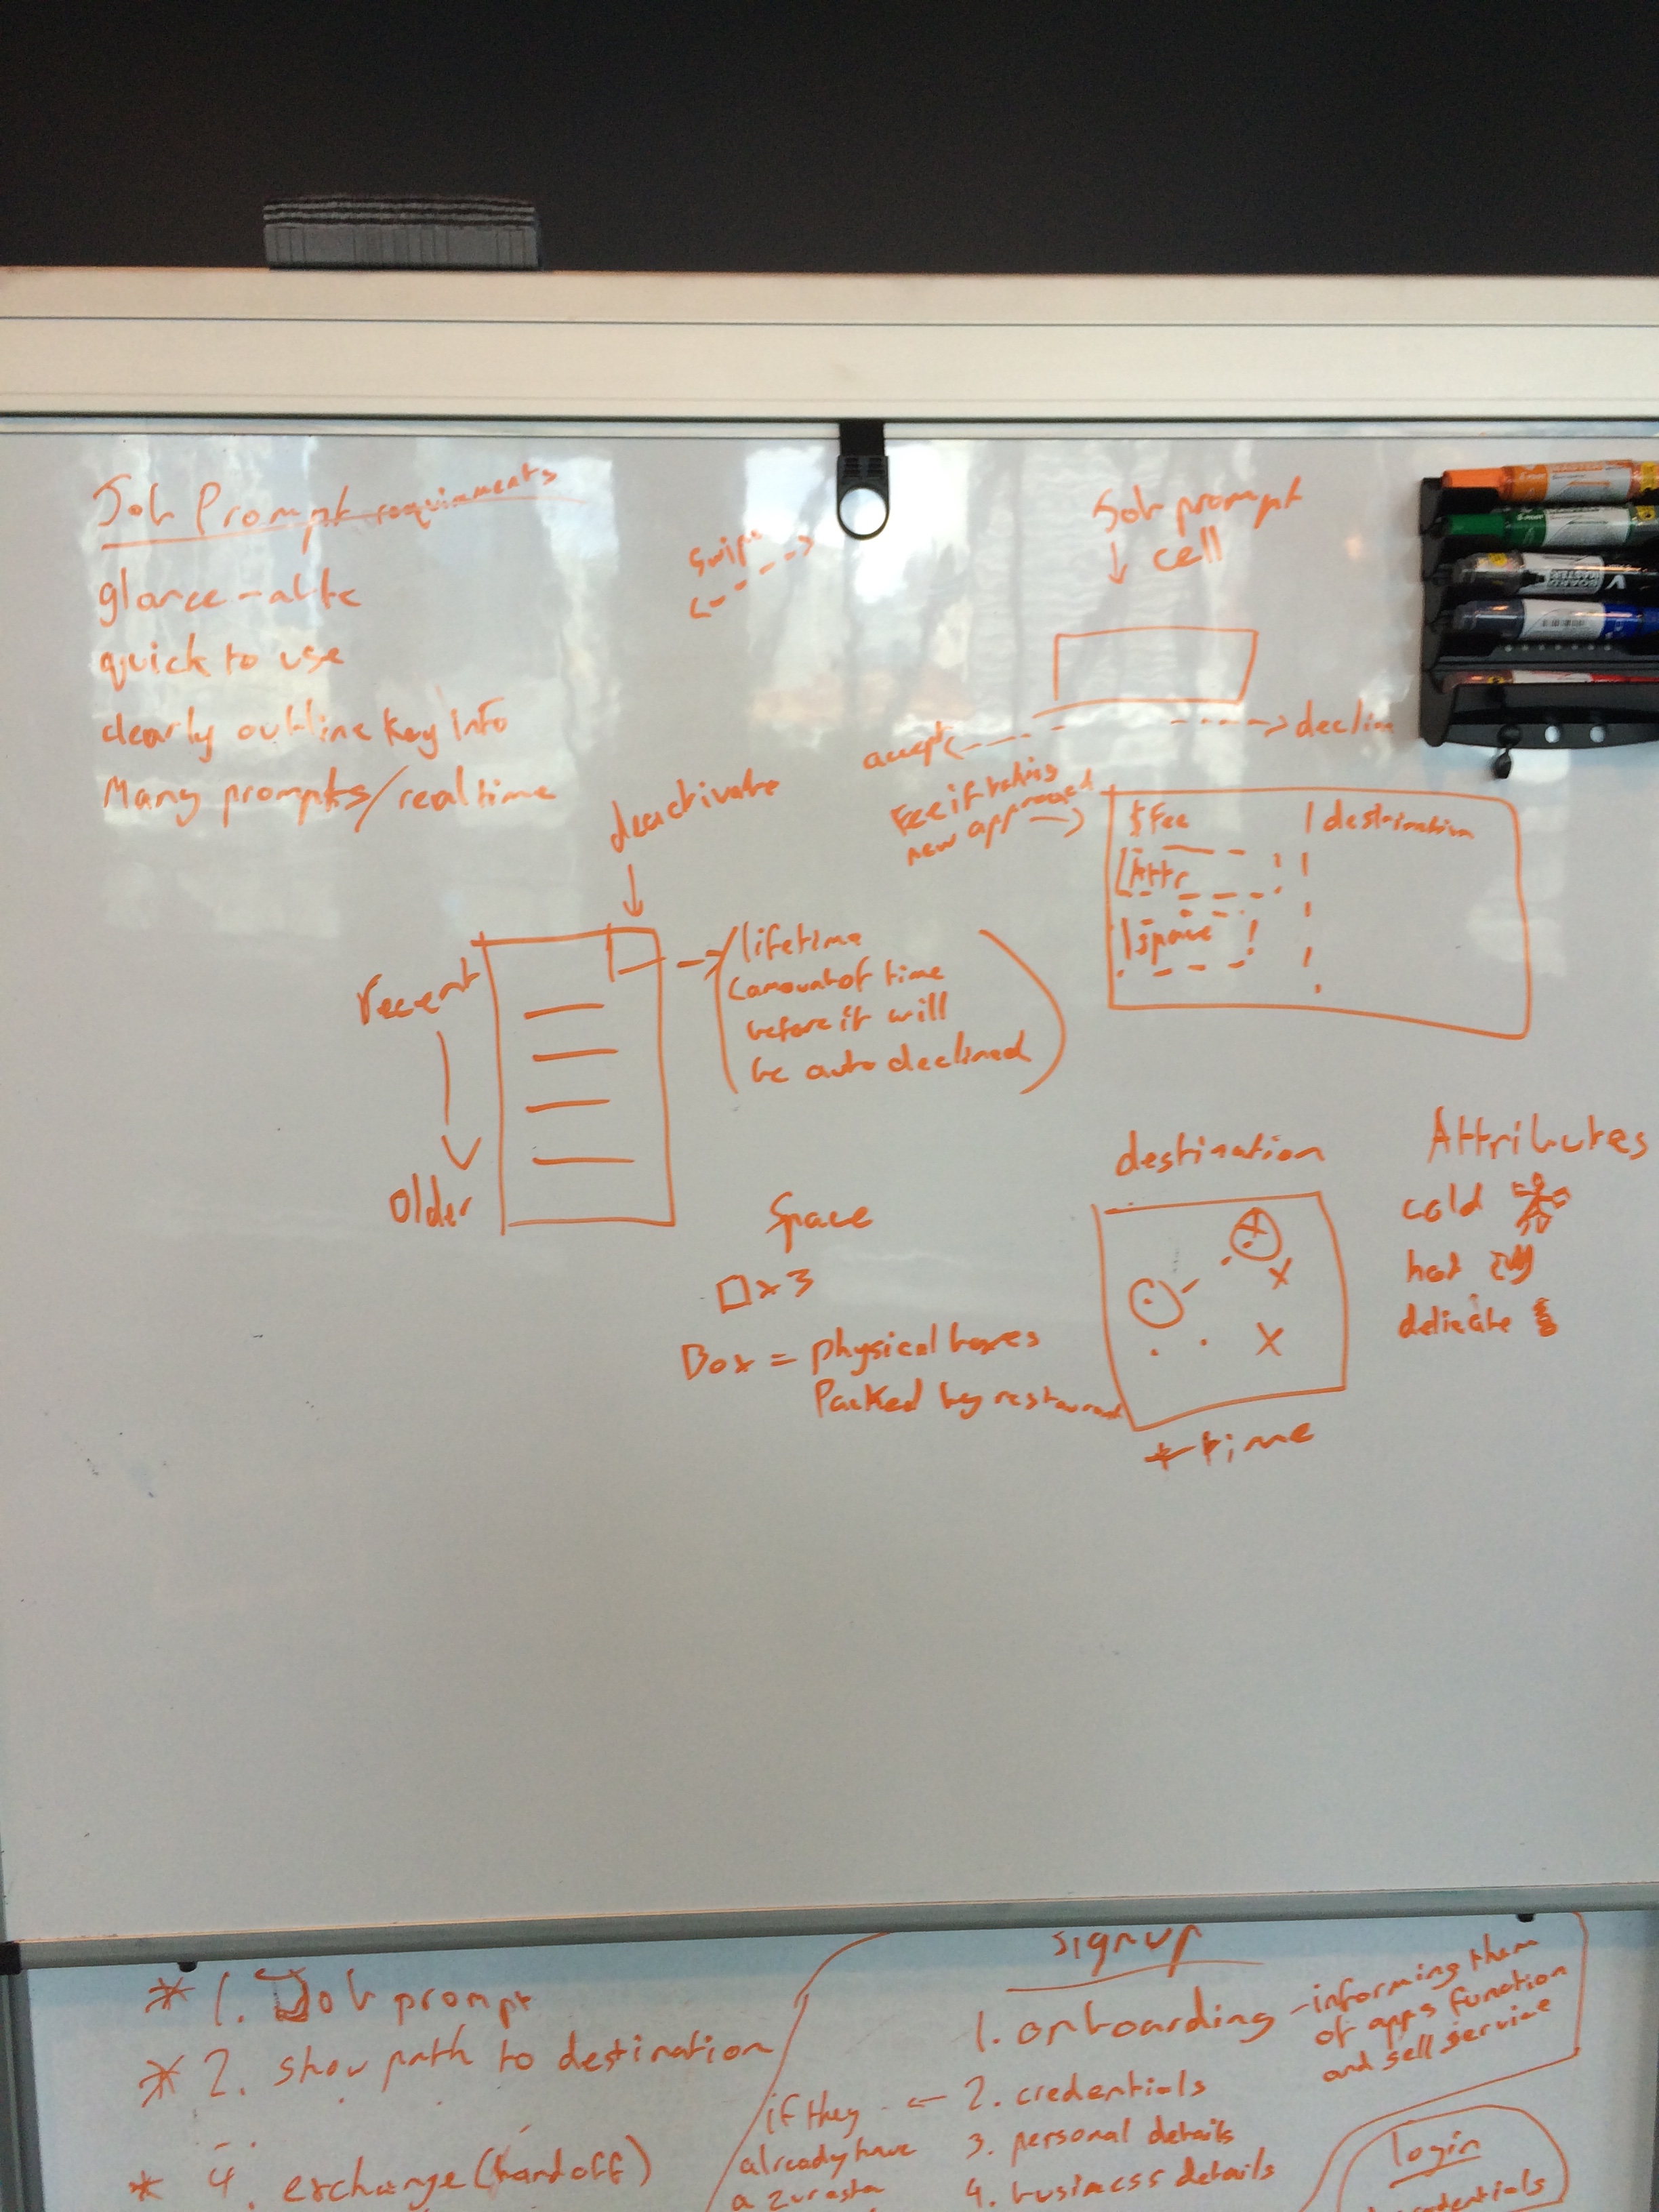 Job Prompt requirments
glance-able
quick to use
clearly outline key info
Many prompts/realtime
swipe
Job prompt
cell
accept
decline
deactivate
Fee if taking
new app
$Fee
destination
Attr
space
recent
older
lifetime
(amount of time
before it will
be auto declined)
Space
x 3
Box = physical boxes
Packed by restaurant
destination
+ time
Attributes
cold
hot
delicate
BOARD
MASTER
* 1. Job prompt
* 2. show path to destination
* 4. exchange (handoff)
signup
1. onboarding - informing them
of apps function
and sell service
2. credentials
if they
already have
a
3. personal details
4. business details
login
credentials